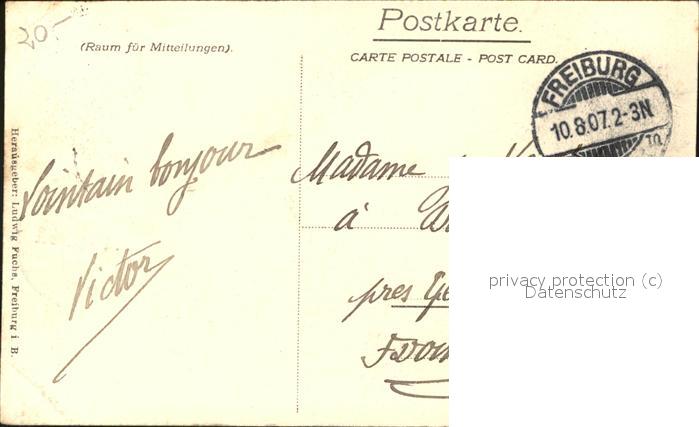 20.-
Postkarte.
(Raum für Mitteilungen).
CARTE POSTALE - POST CARD.
FREIBURG
10.8.07.2-3N
Lointain bonjour
Victor
Madame
à
près
Herausgeber: Ludwig Fuchs, Freiburg i B.
privacy protection (c)
Datenschutz